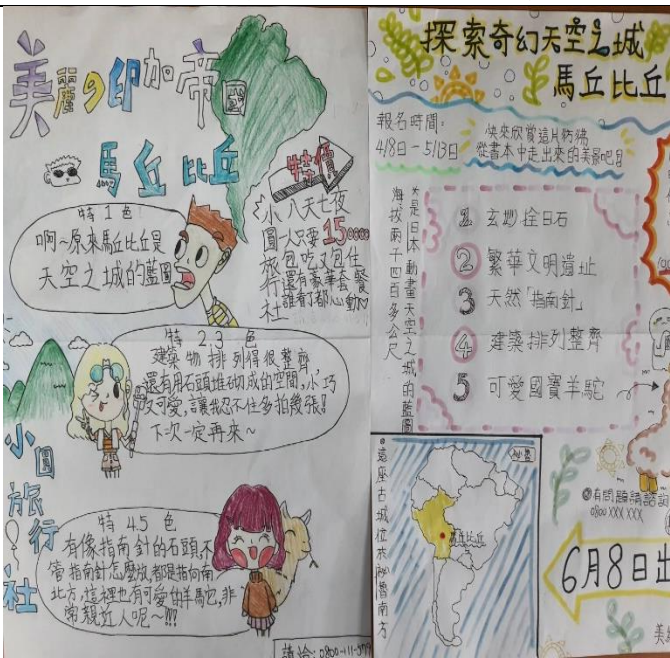 美麗の印加帝國
馬丘比丘
特價
小圓旅行社
八天七夜
一人只要150000
包吃又包住
還有豪華套餐
誰看了都心動
特1色
啊~原來馬丘比丘是
天空之城的藍圖
特2.3色
建築物排列得很整齊,
還有用石頭堆砌成的空間,小巧
又可愛,讓我忍不住多拍幾張!
下次一定再來~
小圓旅行社
特45色
有像指南針的石頭不
管指南針怎麼放,都是指向南
北方,這裡也有可愛的羊駝,非
常親近人呢~!!!
請洽:0800-111-
探索奇幻天空之城
馬丘比丘
報名時間:
4/8日-5/13日
快來欣賞這片彷彿
從書本中走出來的美景吧!
*是日本動畫天空之城的藍圖
海拔兩千四百多公尺
1 玄妙拴日石
2 繁華文明遺址
3 天然「指南針」
4 建築排列整齊
5 可愛國寶羊駝
這座古城位於秘魯南方
秘魯
馬丘比丘
有問題請諮詢
0800 XXX XXX
6月8日出